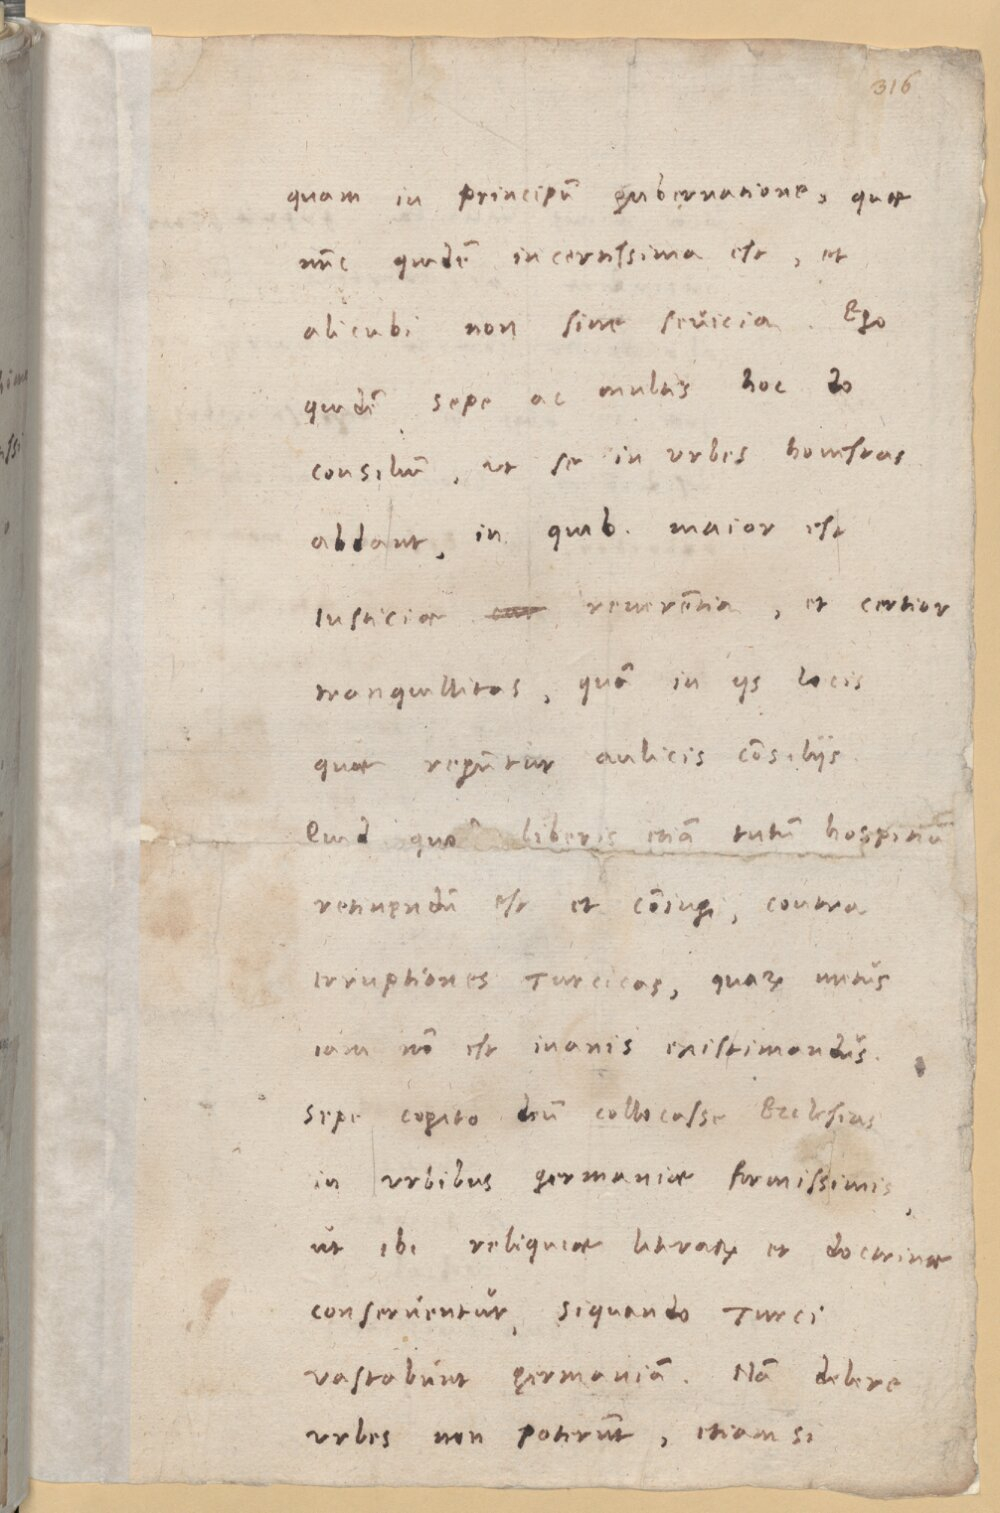 316
quam in principū gubernatione, quae
nūc quidē incertissima est, et
alicubi non sine sevicia. Ego
quidē sepe ac multis hoc do
consiliū, ut se in urbes honestas
abdant, in quib. maior est
Iusticiae reverētia, et certior
tranquillitas, quā in ijs locis
quae regūtur aulicis cōsilijs.
Quid quod liberis etiā tutū hospitiū
retinendū est et cōiugi, contra
irruptiones Turcicas, quarum metus
iam nō est inanis existimandus.
Sepe cogito deū collocasse Ecclesias
in urbibus germaniae firmissimis,
ut ibi reliquiae literarum et doctrinae
conserventur, siquando Turci
vastabunt germaniā. Nā delere
urbes non poterūt, etiam si